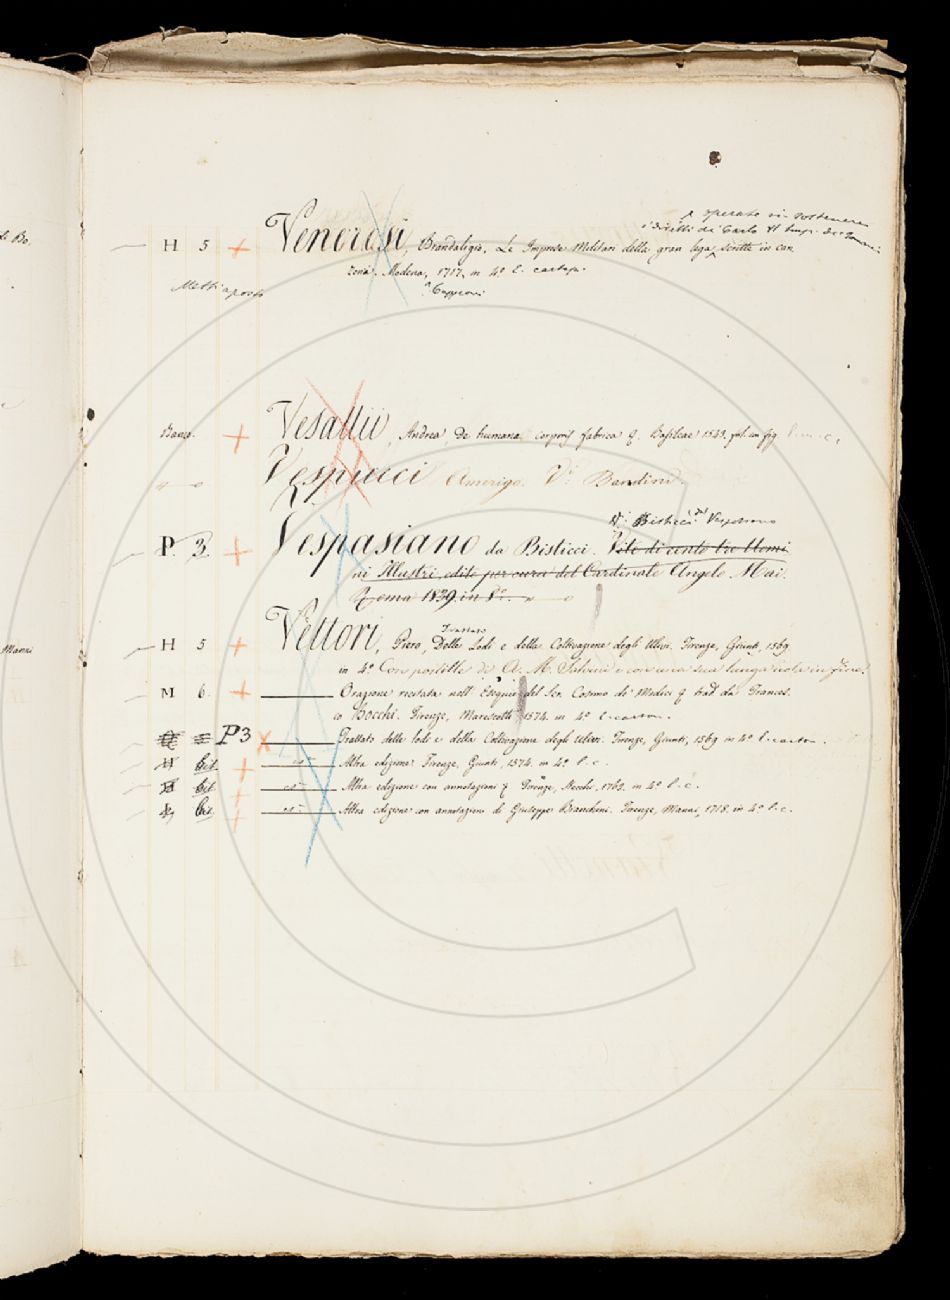 sperate in sostenere
i diritti di Carlo VI Imp.
H 5 + Veneresi, Brandaligio, Le Imprese Militari della gran lega scritte in can
zoni. Modena, 1717, in 4º l. cartap.
Metti a posto
Banco. + Vesallii, Andrea De humana corporis fabrica &. Basileae 1543. fol. con fig.
Vespucci Amerigo. Vi: Bandini.
Vi: Bisticci da Vespasiano
P. 3. + Vespasiano da Bisticci. Vite di cento tre Uomi
ni Illustri, edite per cura del Cardinale Angelo Mai.
Roma 1839. in 8º.
Trattato
H 5 + Vettori, Piero, Delle Lodi e della Coltivazione degli Ulivi. Firenze, Giunti, 1569.
in 4º Con postille di A. M. Salvini e con una sua lunga nota in fine.
M 6. + Orazione recitata nell' Esequie del Ser. Cosimo de Medici & trad. da Frances
co Bocchi. Firenze, Marescotti 1574. in 4º l. carton.
P 3 x Trattato delle lodi e della Coltivazione degli Ulivi. Firenze, Giunti, 1569 in 4º l. carton.
H + Altra edizione. Firenze, Giunti, 1574. in 4º l. c.
+ Altra edizione con annotazioni & Firenze, Stecchi, 1762. in 4º l. c.
+ Altra edizione con annotazioni di Giuseppe Bianchini. Firenze, Manni, 1718. in 4º l. c.
Manni
C